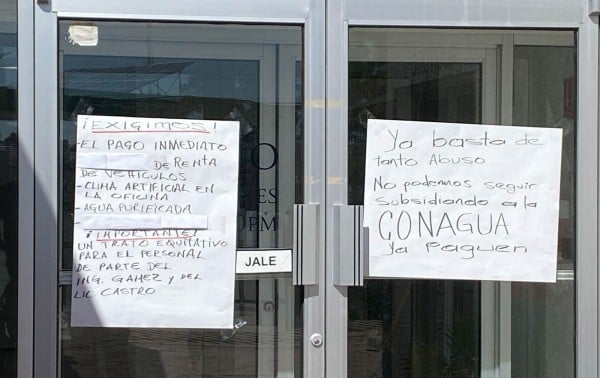 ¡EXIGIMOS!
-EL PAGO INMEDIATO
DE RENTA
DE VEHICULOS
-CLIMA ARTIFICIAL EN
LA OFICINA
-AGUA PURIFICADA
¡IMPORTANTE!
UN TRATO EQUITATIVO
PARA EL PERSONAL
DE PARTE DEL
ING. GAMEZ Y DEL
LIC CASTRO
JALE
Ya basta de
tanto Abuso
No podemos seguir
subsidiando a la
CONAGUA
Ya Paguen